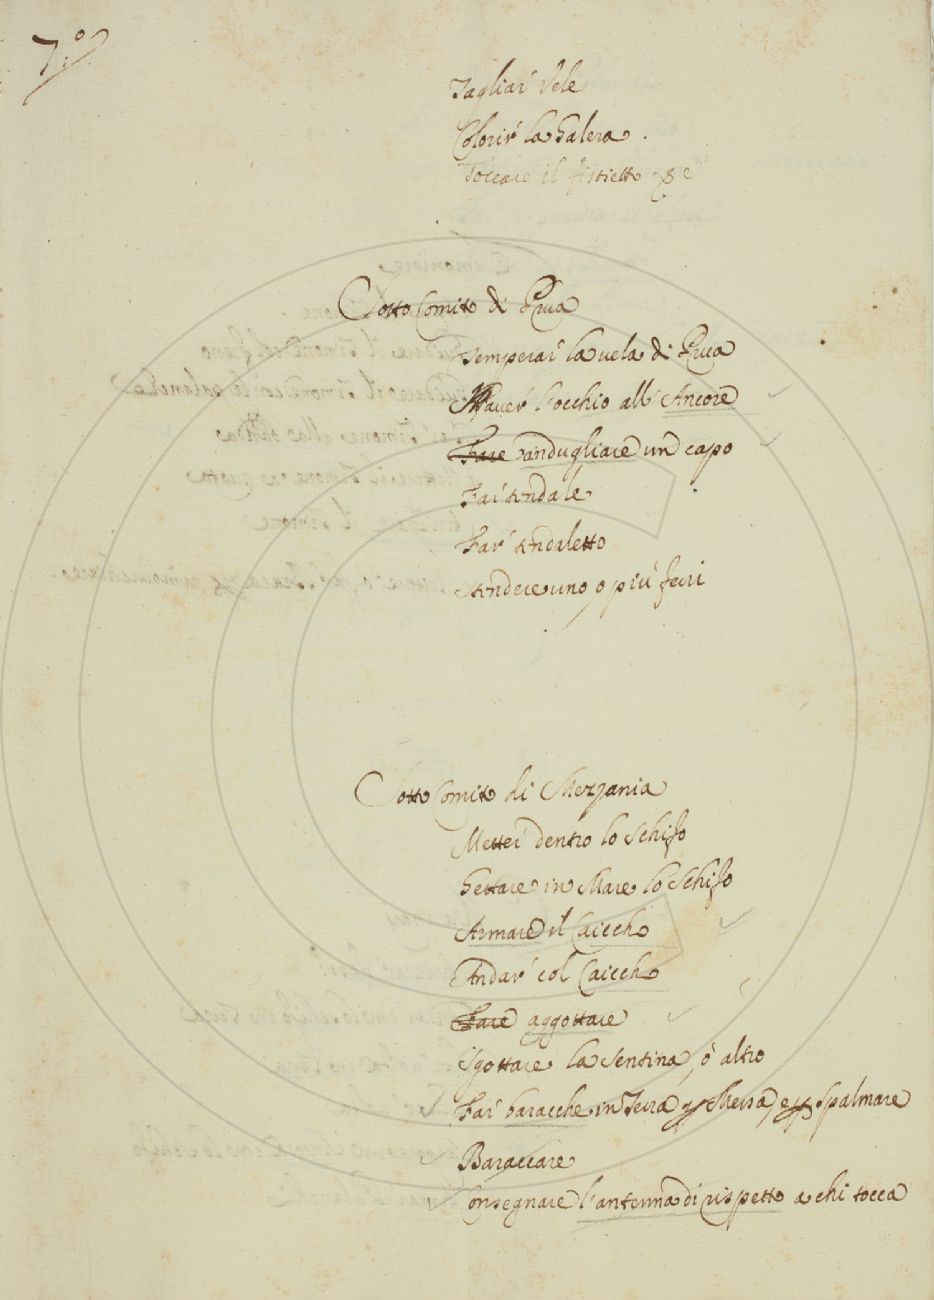 7.º
Tagliar' Vele
Colorir' la Galera.
Toccare il fistietto &c
Sotto Comito di Prua
Temperar' la vela di Prua
Haver l'occhio all'Ancore
Fare andugliare un capo
Far'
Far'
uno o più ferri
Sotto Comito di Mezzania
Metter' dentro lo Schifo
Gettare in Mare lo Schifo
Armare il Caiccho
Andar' col Caiccho
Fare aggottare
Sgottare la Sentina, ò altro
Far' baracche in Terra p Messa, e p Spalmare
Baraccare
Consegnare l'antenna di rispetto a chi tocca